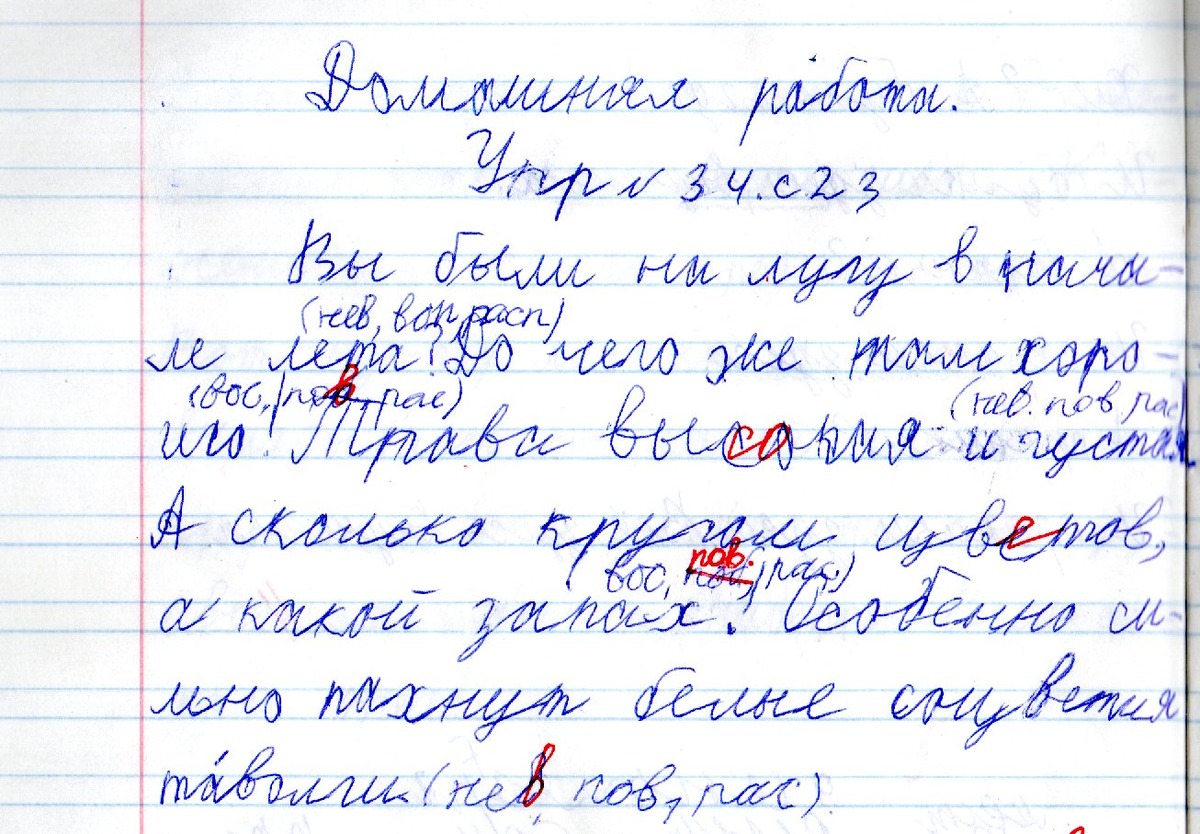 Домашняя работа.
Упр № 34. с 23
Вы были на лугу в нача-
(нев, воп, расп)
ле лета? До чего же там хоро-
(вос, пов, рас) (нев. пов, рас)
шо! Трава высокая и густая.
А сколько кругом цветов,
пов.
вос, рас.)
а какой запах! Особенно си-
льно пахнут белые соцветия
та́волги (нев, пов, рас).